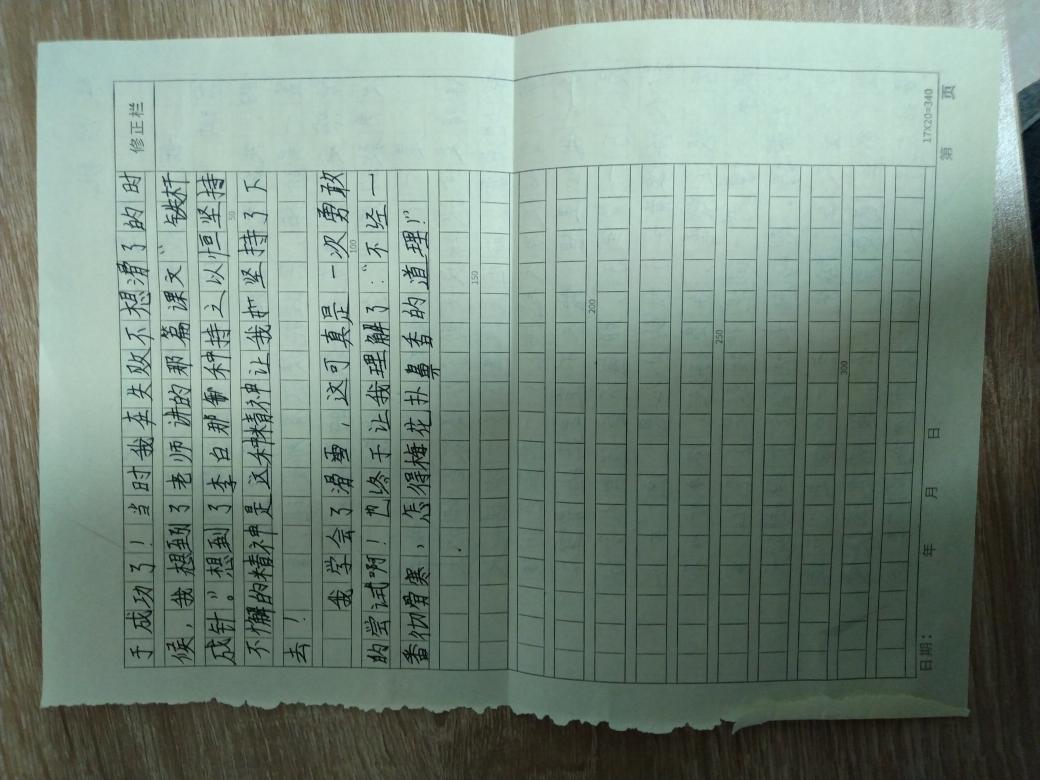 修正栏
于成功了！当时我在失败不想滑了的时
候，我想到了老师讲的那篇课文“铁杵
成针”。想到了李白那种持之以恒坚持
50
不懈的精神是这种精神让我坚持了下
去！
我学会了滑雪，这可真是一次勇敢
100
的尝试啊！也终于让我理解了：“不经一
番彻骨寒，怎得梅花扑鼻香的道理！”
150
200
250
300
日期： 年 月 日
17X20=340
第 页